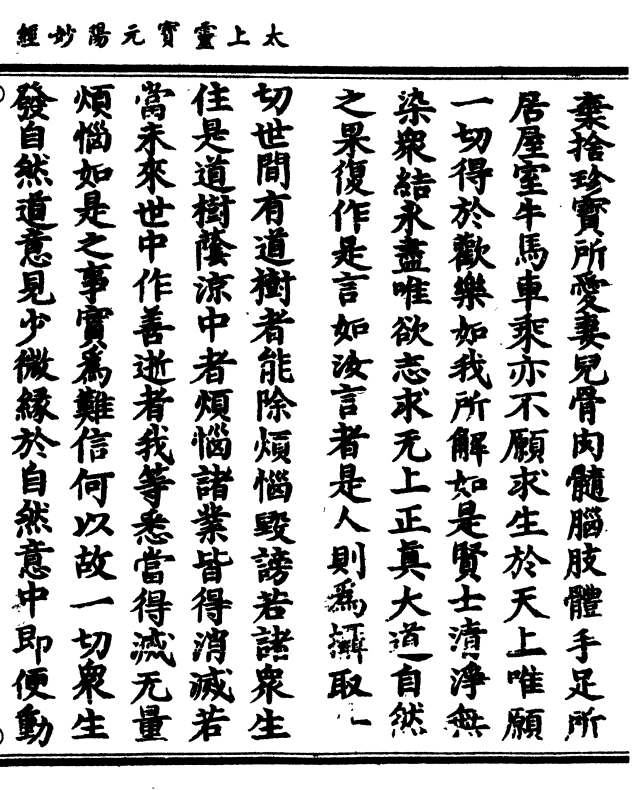 太上靈寶元陽妙經
棄捨珍寶所愛妻兒骨肉髓腦肢體手足所
居屋室牛馬車乘亦不願求生於天上唯願
一切得於歡樂如我所解如是賢士清淨無
染眾結永盡唯欲志求无上正真大道自然
之果復作是言如汝言者是人則為攝取一
切世間有道樹者能除煩惱毀謗若諸眾生
住是道樹蔭涼中者煩惱諸業皆得消滅若
當未來世中作善逝者我等悉當得滅无量
煩惱如是之事實為難信何以故一切眾生
發自然道意見少微緣於自然意中即便動